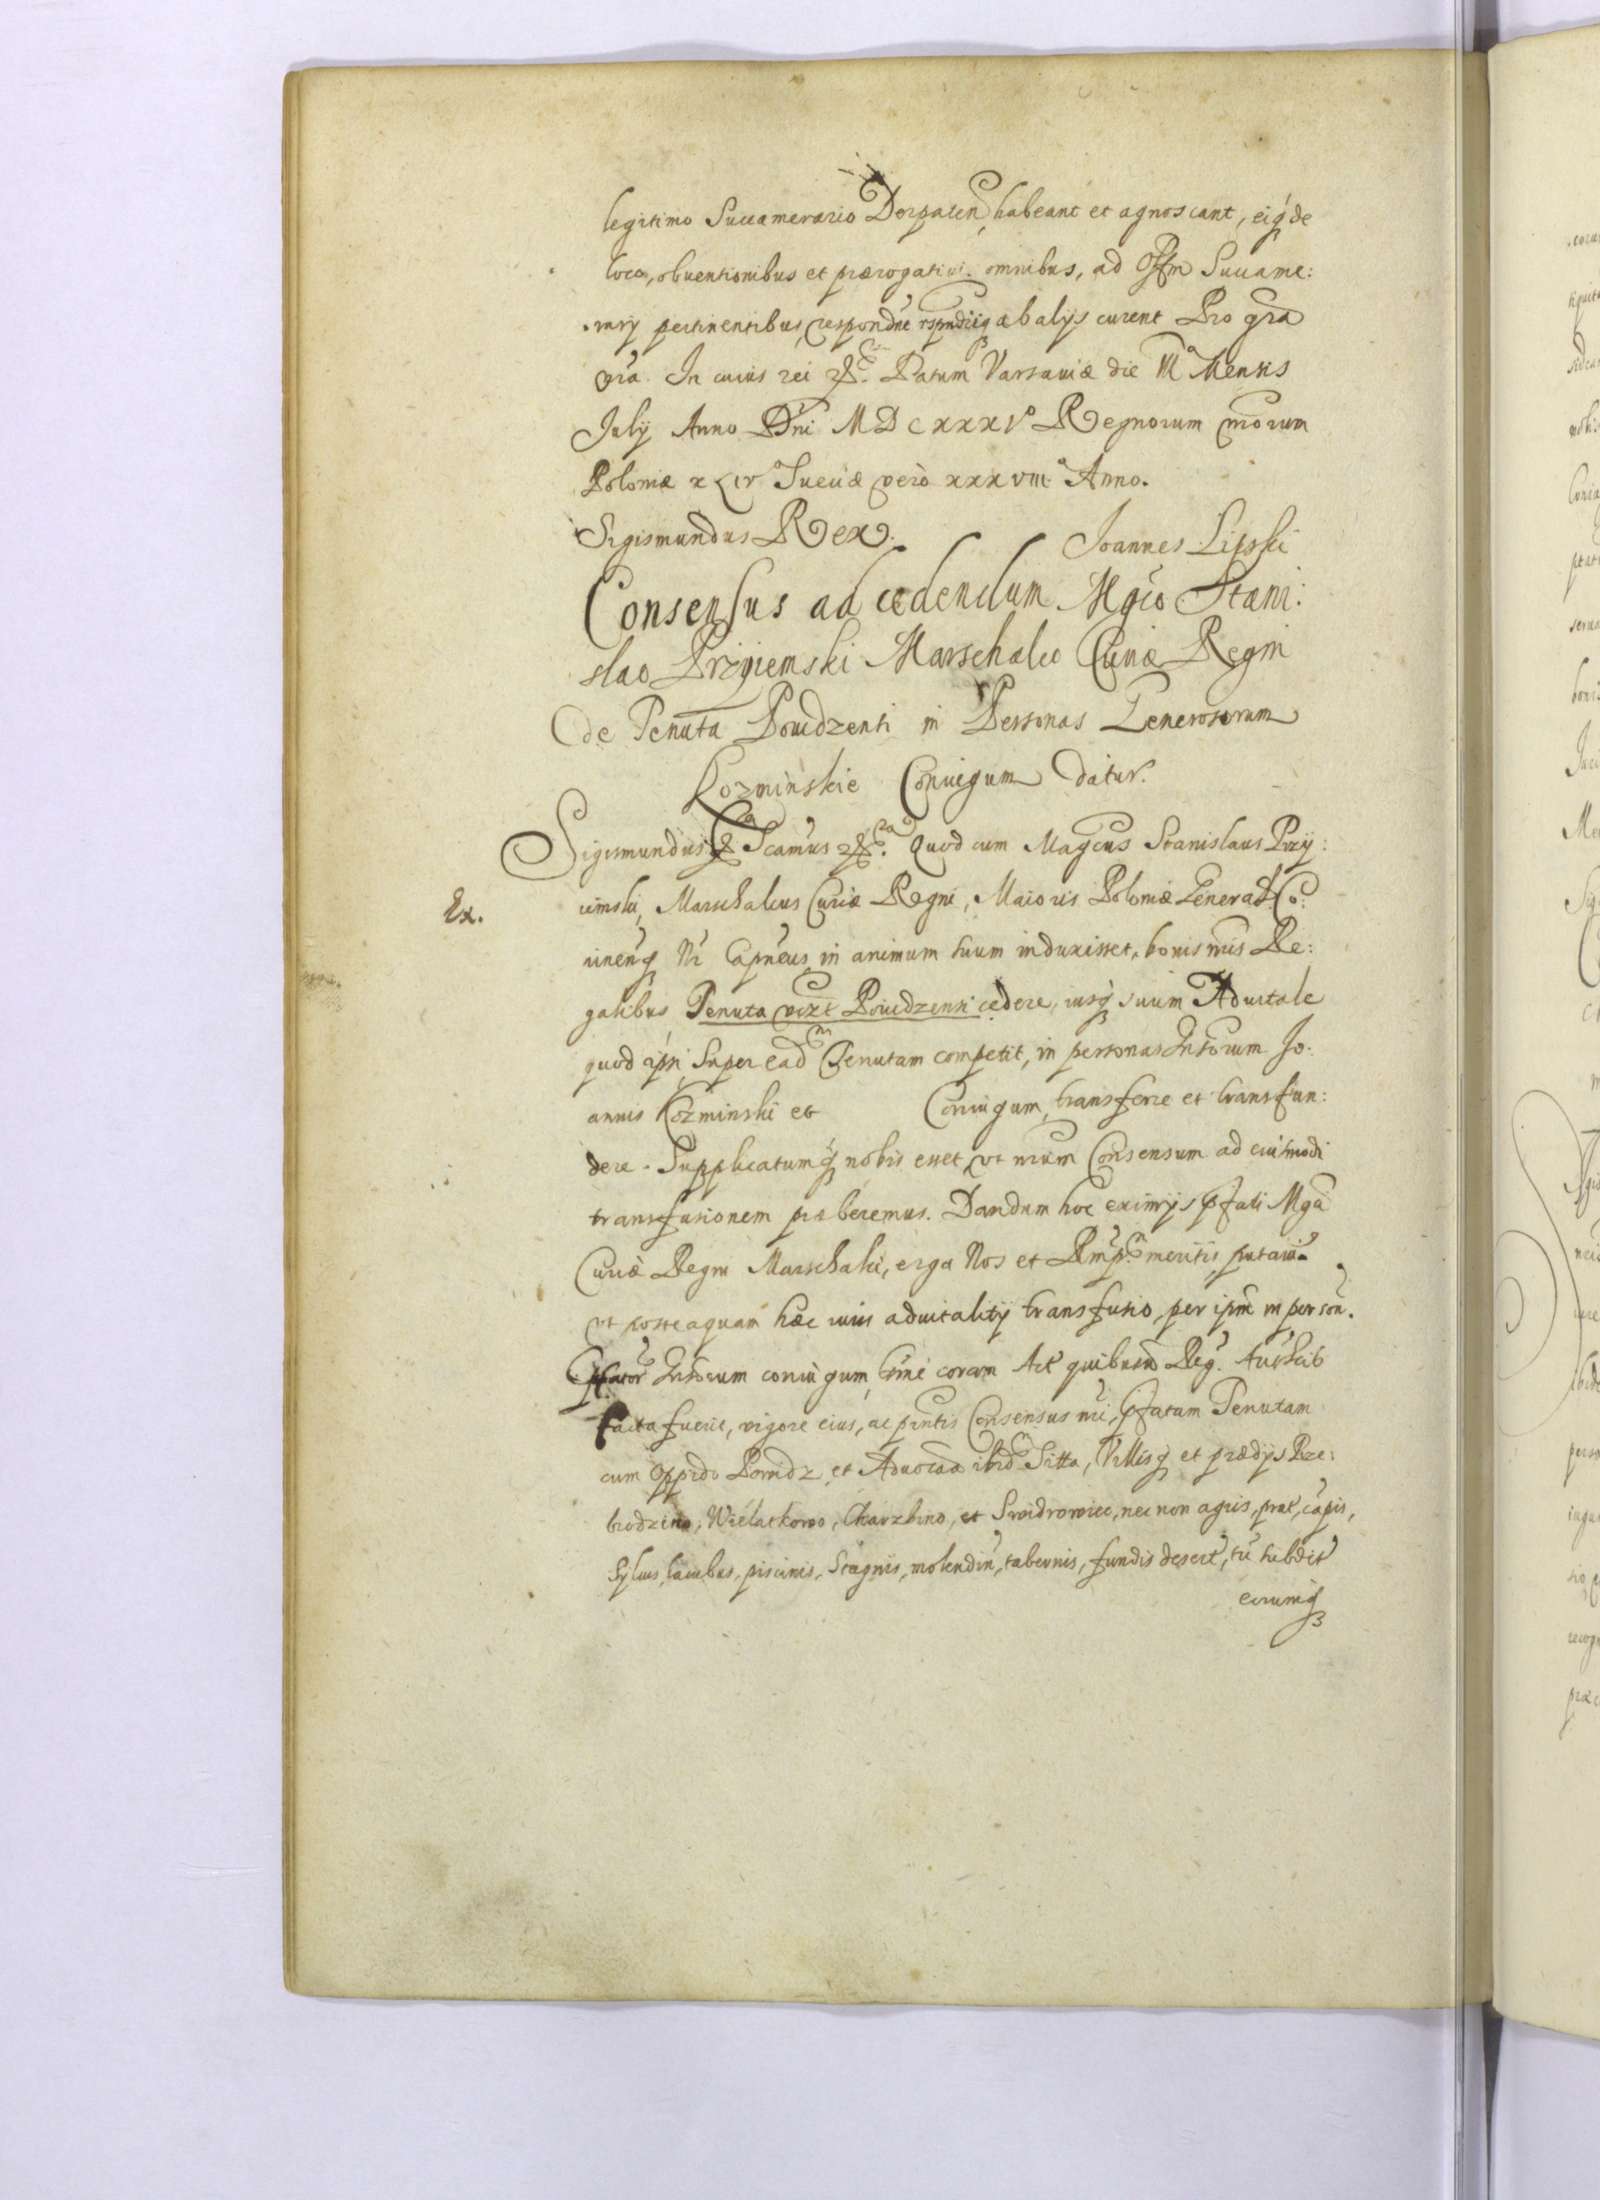 legitimo Succamerario Dorpaten habeant et agnoscant, eiq́ de
loco, obuentionibus et prærogatiui. omnibus, ad Offm Succame:
rarÿ pertinentibus respondne rspndriq́ ab alijs curent Pro gra
nra. In cuius rei &. Datum Varsauiæ die III Mensis
Julÿ Anno Dni MDCXXXI Regnorum nrorum
Poloniæ XLIV Sueciæ vero XXXVIII Anno.
Sigismundus Rex. Joannes Lipski
Consensus ad cedendum Mgco Stani:
slao Prziemski Marschalco Curiæ Regni
de Tenuta Powidzensi in Personas Generosorum
Kozminskie Coniugum datur.
Sigismundus & Scamus &. Quod cum Magcus Stanislaus Przÿ:
iemski, Marschalcus Curiæ Regni, Maioris Poloniæ General Co:
Ex.
nineñq́ Nr Capneus in animum suum induxisset, bonis nris Re:
galibus Tenuta vizt Powidzensi cedere, iusq́ suum Aduitale
quod ipsi super ead Tenutam competit, in personas Gnsorum Jo:
annis Kozminski et Coniugum, transferre et transfun:
dere. Supplicatumq́ nobis esset vt nrum Consensum ad eiusmodi
transfusionem præberemus. Dandum hoc eximijs pfati Mgci
Curiæ Regni Marschalci, erga Nos et Rmp. meritis putaui.
vt posteaquam hæc iuris aduitalitÿ transfusio per ipm in person.
pfator Gnsorum coniugum, coram Act quibusu Reg. Authēt
facta fuerit, vigore eius, ac pntis Consensus nri, pfatam Tenutam
cum Oppido Powidz et Aduocaa ibid Sitta, Villisq́ et prædÿs Prze:
brodzino, Wielatkowo, Charzbino, et Swidrowiec, nec non agris, prat, capis,
syluis, lacubus, piscinis, Stagnis, molendin, tabernis, fundis desert, tu subdit
eorumq́